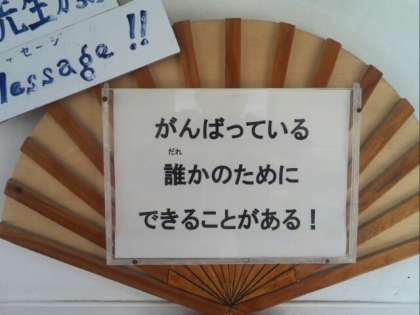 先生から
メッセージ
Message !!
がんばっている
だれ
誰かのために
できることがある！